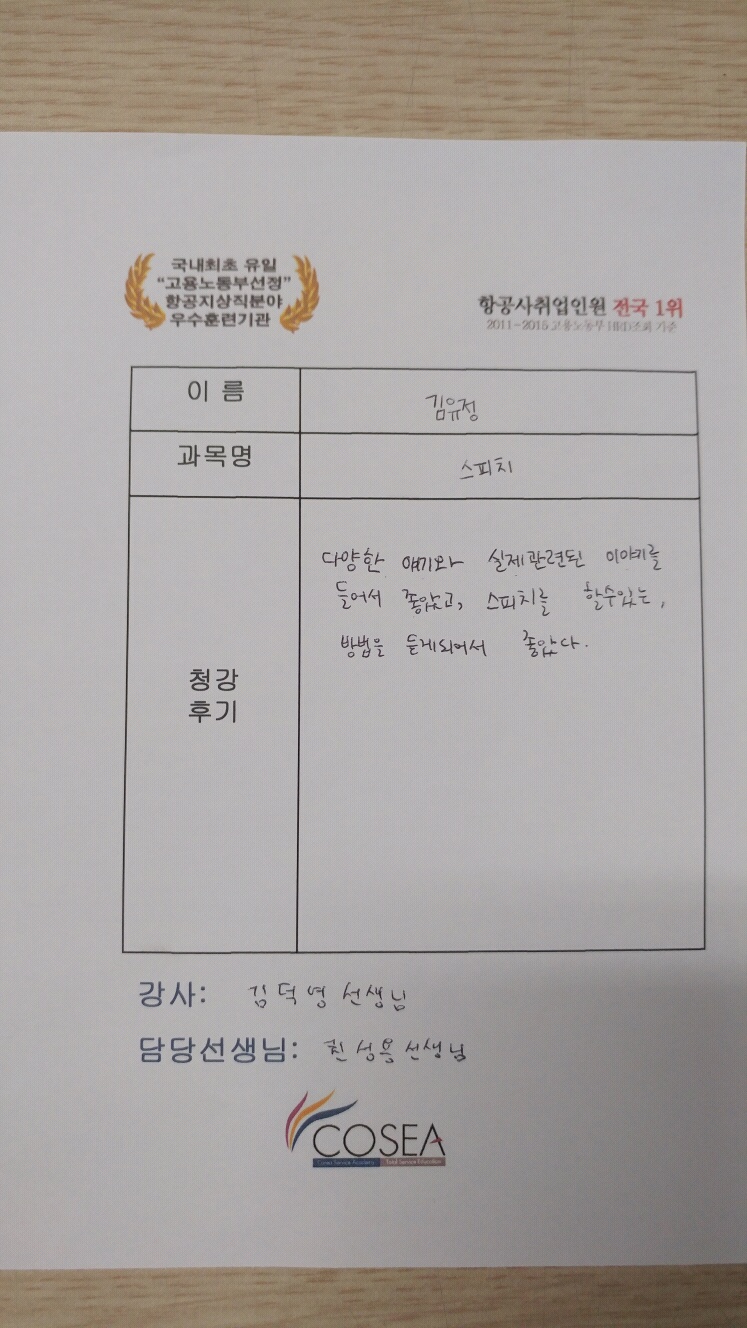 국내최초 유일
“고용노동부선정”
항공지상직분야
우수훈련기관
항공사취업인원 전국 1위
2011-2015 고용노동부 HRD조회 기준
이 름
김유정
과목명
스피치
청강
후기
다양한 얘기와 실제관련된 이야기를
들어서 좋았고, 스피치를 할수있는,
방법을 듣게되어서 좋았다.
강사: 김덕영 선생님
담당선생님: 선생님
COSEA
Cosea Service Academy Total Service Education